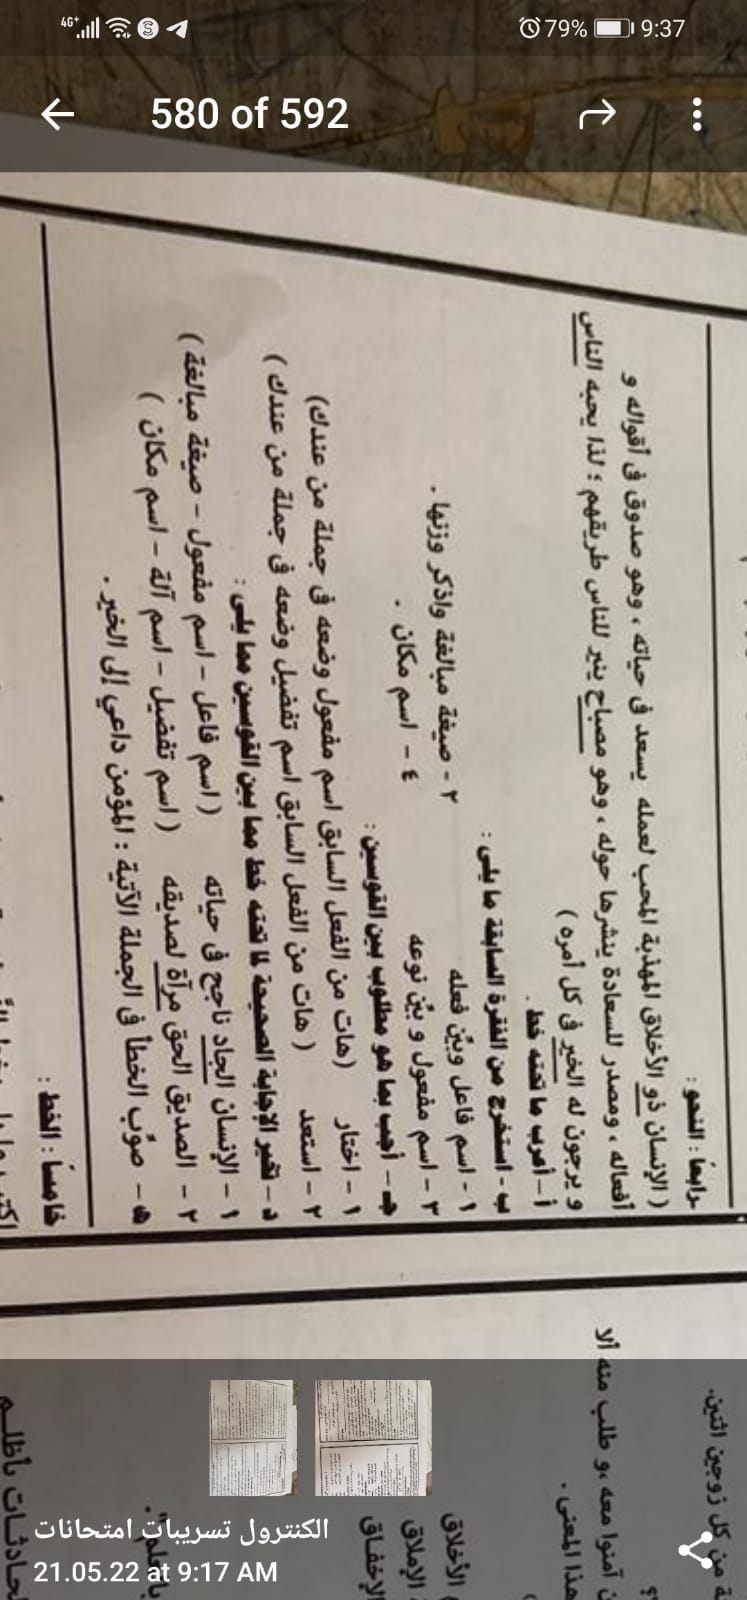 4G+
79% 9:37
580 of 592
رابعًا : النحو :
( الإنسان ذو الأخلاق المهذبة المحب لعمله يسعد فى حياته ، وهو صدوق فى أقواله و
أفعاله ، ومصدر للسعادة ينشرها حوله ، وهو مصباح ينير للناس طريقهم ؛ لذا يحبه الناس
و يرجون له الخير فى كل أمره )
أ – أعرب ما تحته خط .
ب – استخرج من الفقرة السابقة ما يلى :
١ – اسم فاعل وبيّن فعله
٢ – صيغة مبالغة واذكر وزنها .
٣ – اسم مفعول و بيّن نوعه
٤ – اسم مكان .
جـ – أجب بما هو مطلوب بين القوسين :
١ – اختار (هات من الفعل السابق اسم مفعول وضعه فى جملة من عندك)
٢ – استعد ( هات من الفعل السابق اسم تفضيل وضعه فى جملة من عندك )
د – تخير الإجابة الصحيحة لما تحته خط مما بين القوسين مما يلى :
١ – الإنسان الجاد ناجح فى حياته ( اسم فاعل – اسم مفعول – صيغة مبالغة )
٢ – الصديق الحق مرآة لصديقه ( اسم تفضيل – اسم آلة – اسم مكان )
هـ – صوّب الخطأ فى الجملة الآتية : المؤمن داعي إلى الخير .
خامسًا : الخط :
ة من كل زوجين اثنين.
ن آمنوا معه ،و طلب منه ألا
هذا المعنى .
الأخلاق
الإملاق
الإخفـاق
الكنترول تسريبات امتحانات
21.05.22 at 9:17 AM